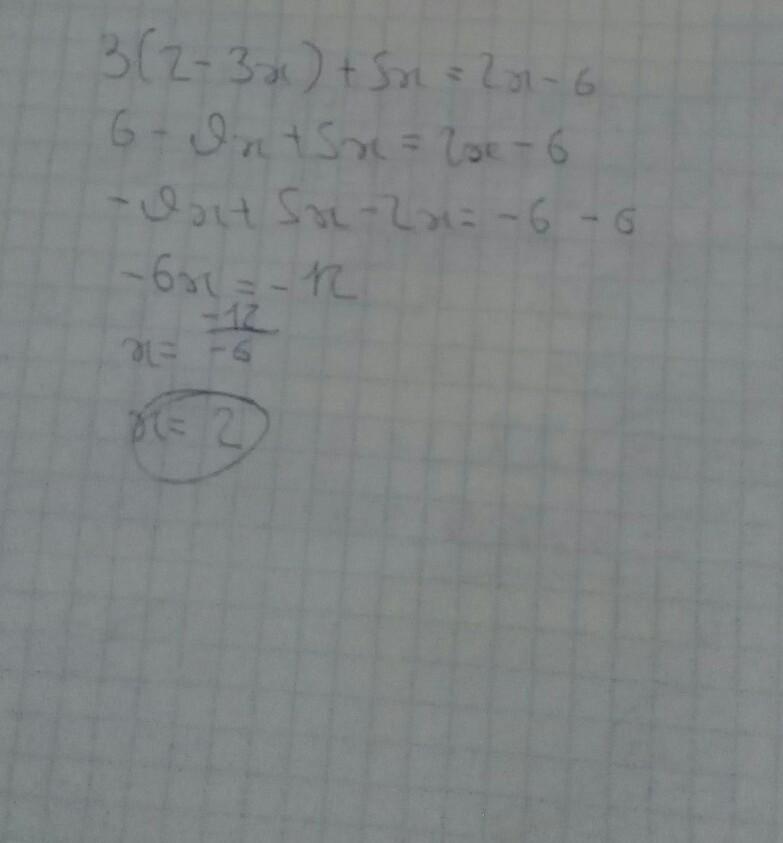 3(2-3x)+5x=2x-6
6-9x+5x=2x-6
-9x+5x-2x=-6-6
-6x=-12
x=-12/-6
x=2